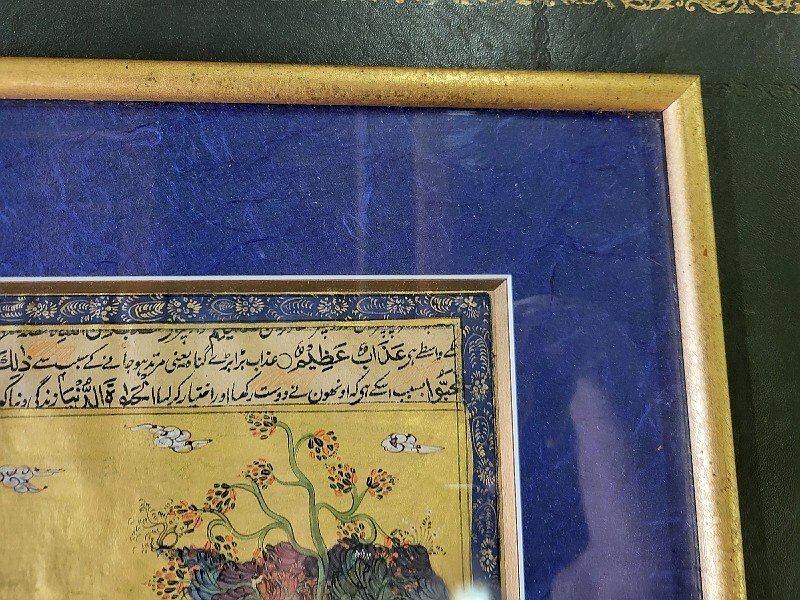 کے واسطے ہے عَذَابٌ عَظِيْمٌ ○ عذاب بڑا بڑے گناہ یعنی مرتد ہو جانے کے سبب سے ذٰلِكَ
بسبب اسکے ہی کہ اونھون نے دوست رکھا اور اختیار کر لیا الْحَيٰوةَ الدُّنْيَا زندگی دنیا کو